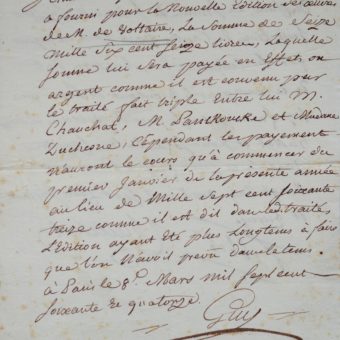 a fourni pour la Nouvelle Edition des œuvres
de M. de Voltaire, La Somme de Seize
Mille Six cent seize livres, Laquelle
somme lui sera payée en Effet, ou
argent comme il est convenu par
le traité fait triple Entre lui M.
Chauchat, M Panckoucke et Madame
Duchesne, Cependant les payement
n'auront le cours qu'à commencer du
premier Janvier de la presente année
au lieu de Mille Sept cent soixante
treize comme il est dit dans les traités
L'Edition ayant été plus Longtems à faire
que l'on n'avoit prevu dans le tems.
à Paris le 8. Mars mil sept cent
soixante et quatorze.
Guy